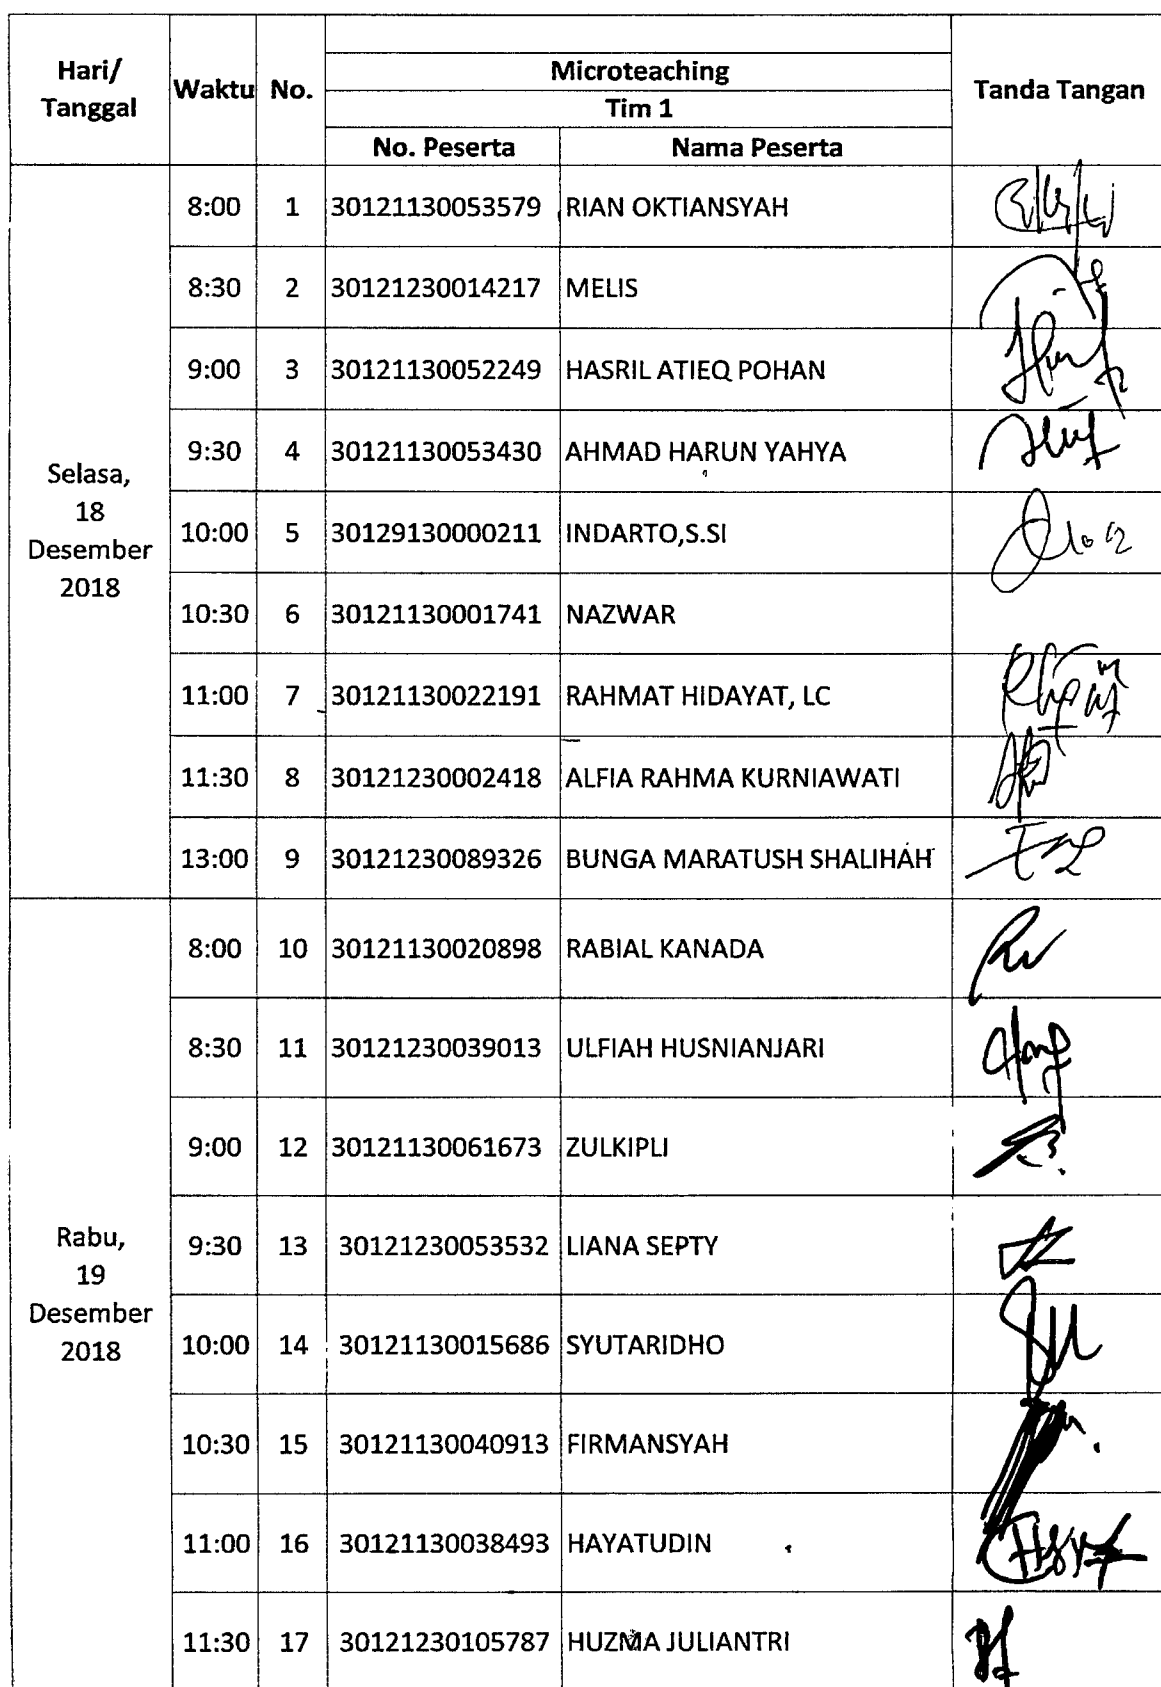 Hari/ Tanggal Waktu No. Microteaching Tanda Tangan
Tim 1
No. Peserta Nama Peserta
Selasa, 18 Desember 2018
8:00 1 30121130053579 RIAN OKTIANSYAH
8:30 2 30121230014217 MELIS
9:00 3 30121130052249 HASRIL ATIEQ POHAN
9:30 4 30121130053430 AHMAD HARUN YAHYA
10:00 5 30129130000211 INDARTO,S.SI
10:30 6 30121130001741 NAZWAR
11:00 7 30121130022191 RAHMAT HIDAYAT, LC
11:30 8 30121230002418 ALFIA RAHMA KURNIAWATI
13:00 9 30121230089326 BUNGA MARATUSH SHALIHAH
Rabu, 19 Desember 2018
8:00 10 30121130020898 RABIAL KANADA
8:30 11 30121230039013 ULFIAH HUSNIANJARI
9:00 12 30121130061673 ZULKIPLI
9:30 13 30121230053532 LIANA SEPTY
10:00 14 30121130015686 SYUTARIDHO
10:30 15 30121130040913 FIRMANSYAH
11:00 16 30121130038493 HAYATUDIN
11:30 17 30121230105787 HUZMA JULIANTRI